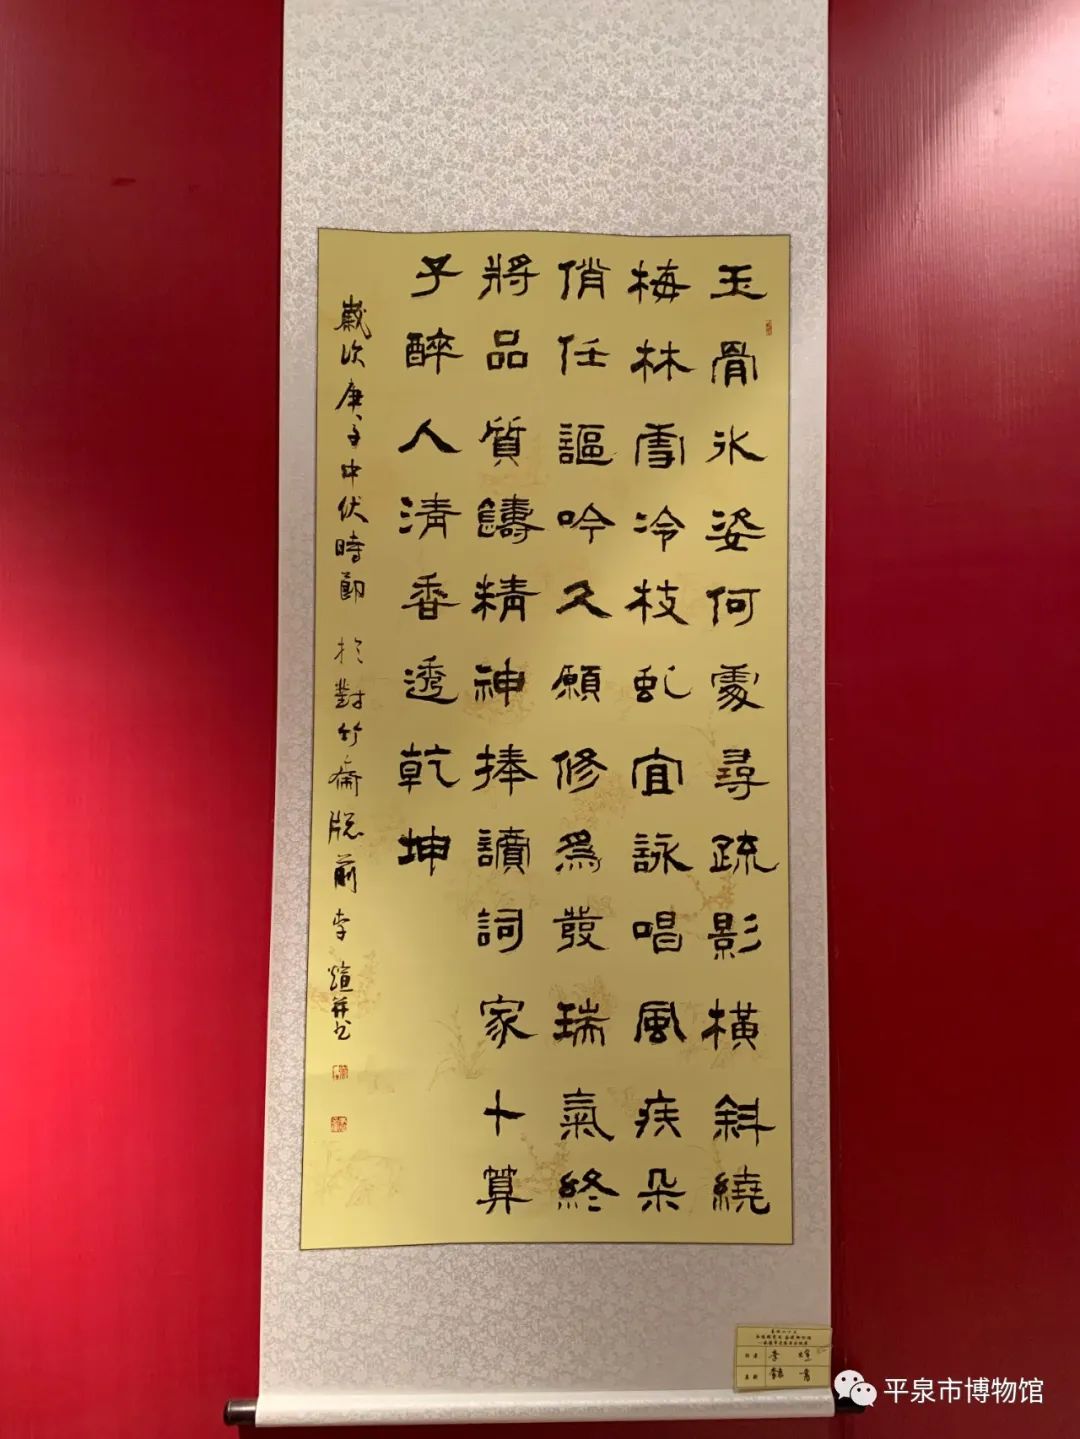 玉骨氷姿何處尋疏影橫斜繞
梅林雪冷枝虬宜詠唱風疾朵
俏任謳吟久願修為發瑞氣終
將品質鑄精神捧讀詞家卜算
子醉人清香透乾坤
歲次庚子中伏時節於對竹齋牕前李煊并書
李煊
平泉市博物馆